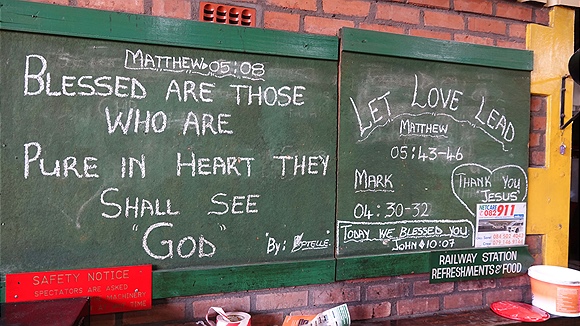 MATTHEW 05:08
BLESSED ARE THOSE
WHO ARE
PURE IN HEART THEY
SHALL SEE
"GOD"
"By:
LET LOVE LEAD
MATTHEW
05:43-46
MARK
04:30-32
THANK YOU
"JESUS"
TODAY WE BLESSED YOU
JOHN 10:07
NETCARE
082 911
RAILWAY STATION
REFRESHMENTS & FOOD
SAFETY NOTICE
SPECTATORS ARE ASKED
MACHINERY
TIME